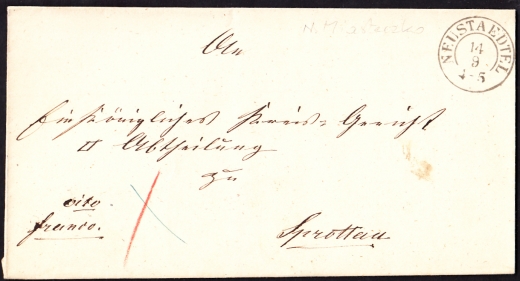 N. Miasteczko
NEUSTAEDTEL
14
9
4-5
An
Ein Königliches Kreis=Gericht
II Abtheilung
zu
cito
franco.
Sprottau